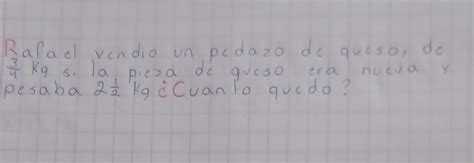 Rafael vendio un pedazo de queso, de
3/4 Kg si la pieza de queso era nueva y
pesaba 2 1/2 Kg ¿Cuanto quedo?